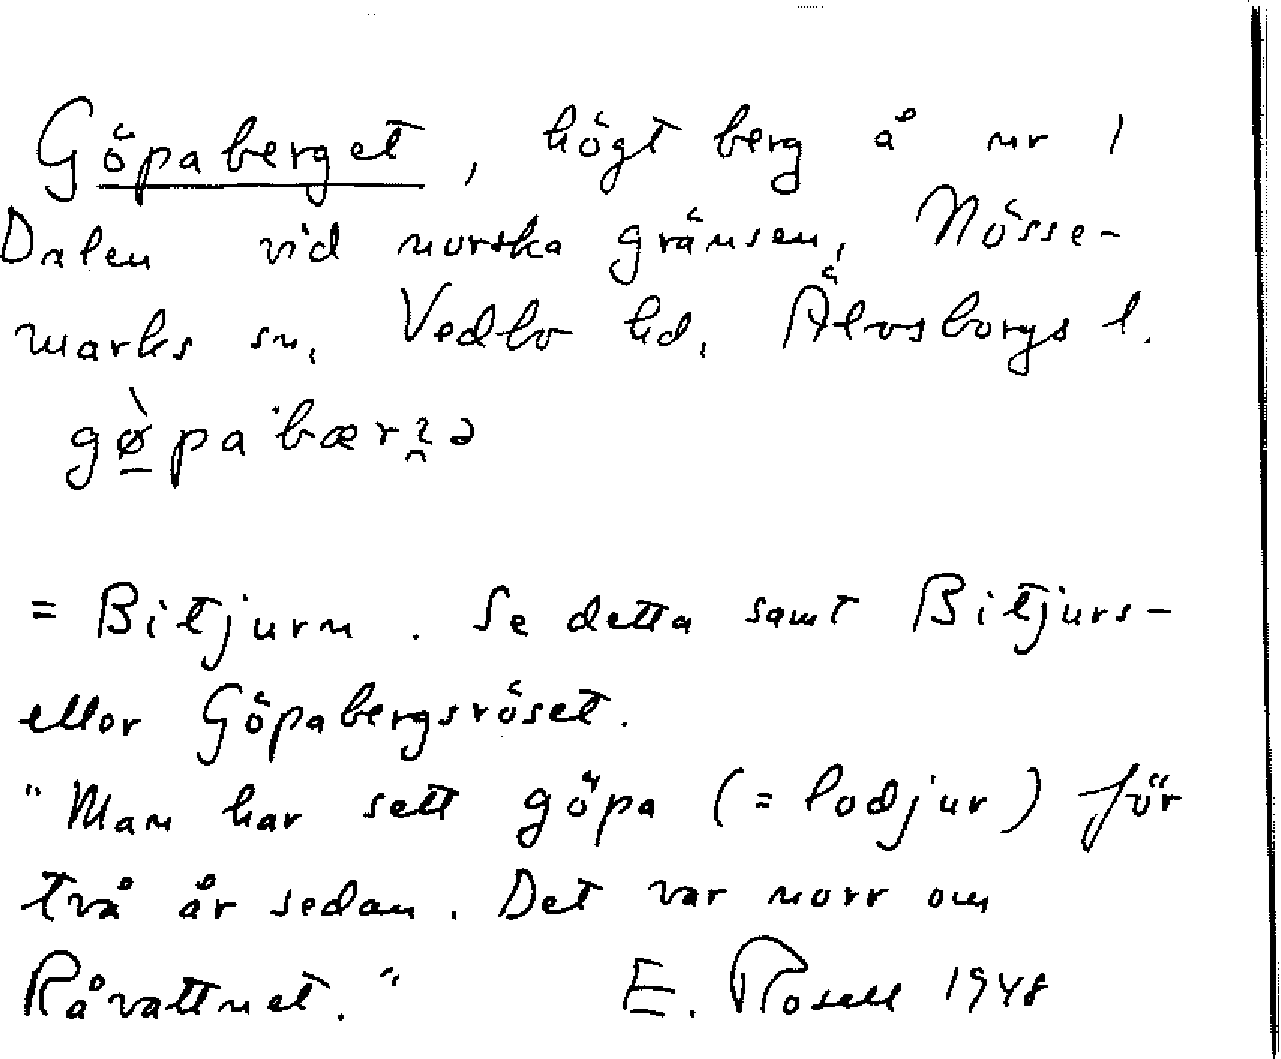 Göpaberget, högt berg å nr 1
Dalen vid norska gränsen, Nösse-
marks sn, Vedbo hd, Älvsborgs l.
gø̀pabær
= Bitjurn. Se detta samt Bitjurs-
eller Göpabergsröset.
"Man har sett göpa (= lodjur) för
två år sedan. Det var norr om
Råvattnet." E. Rosell 1948